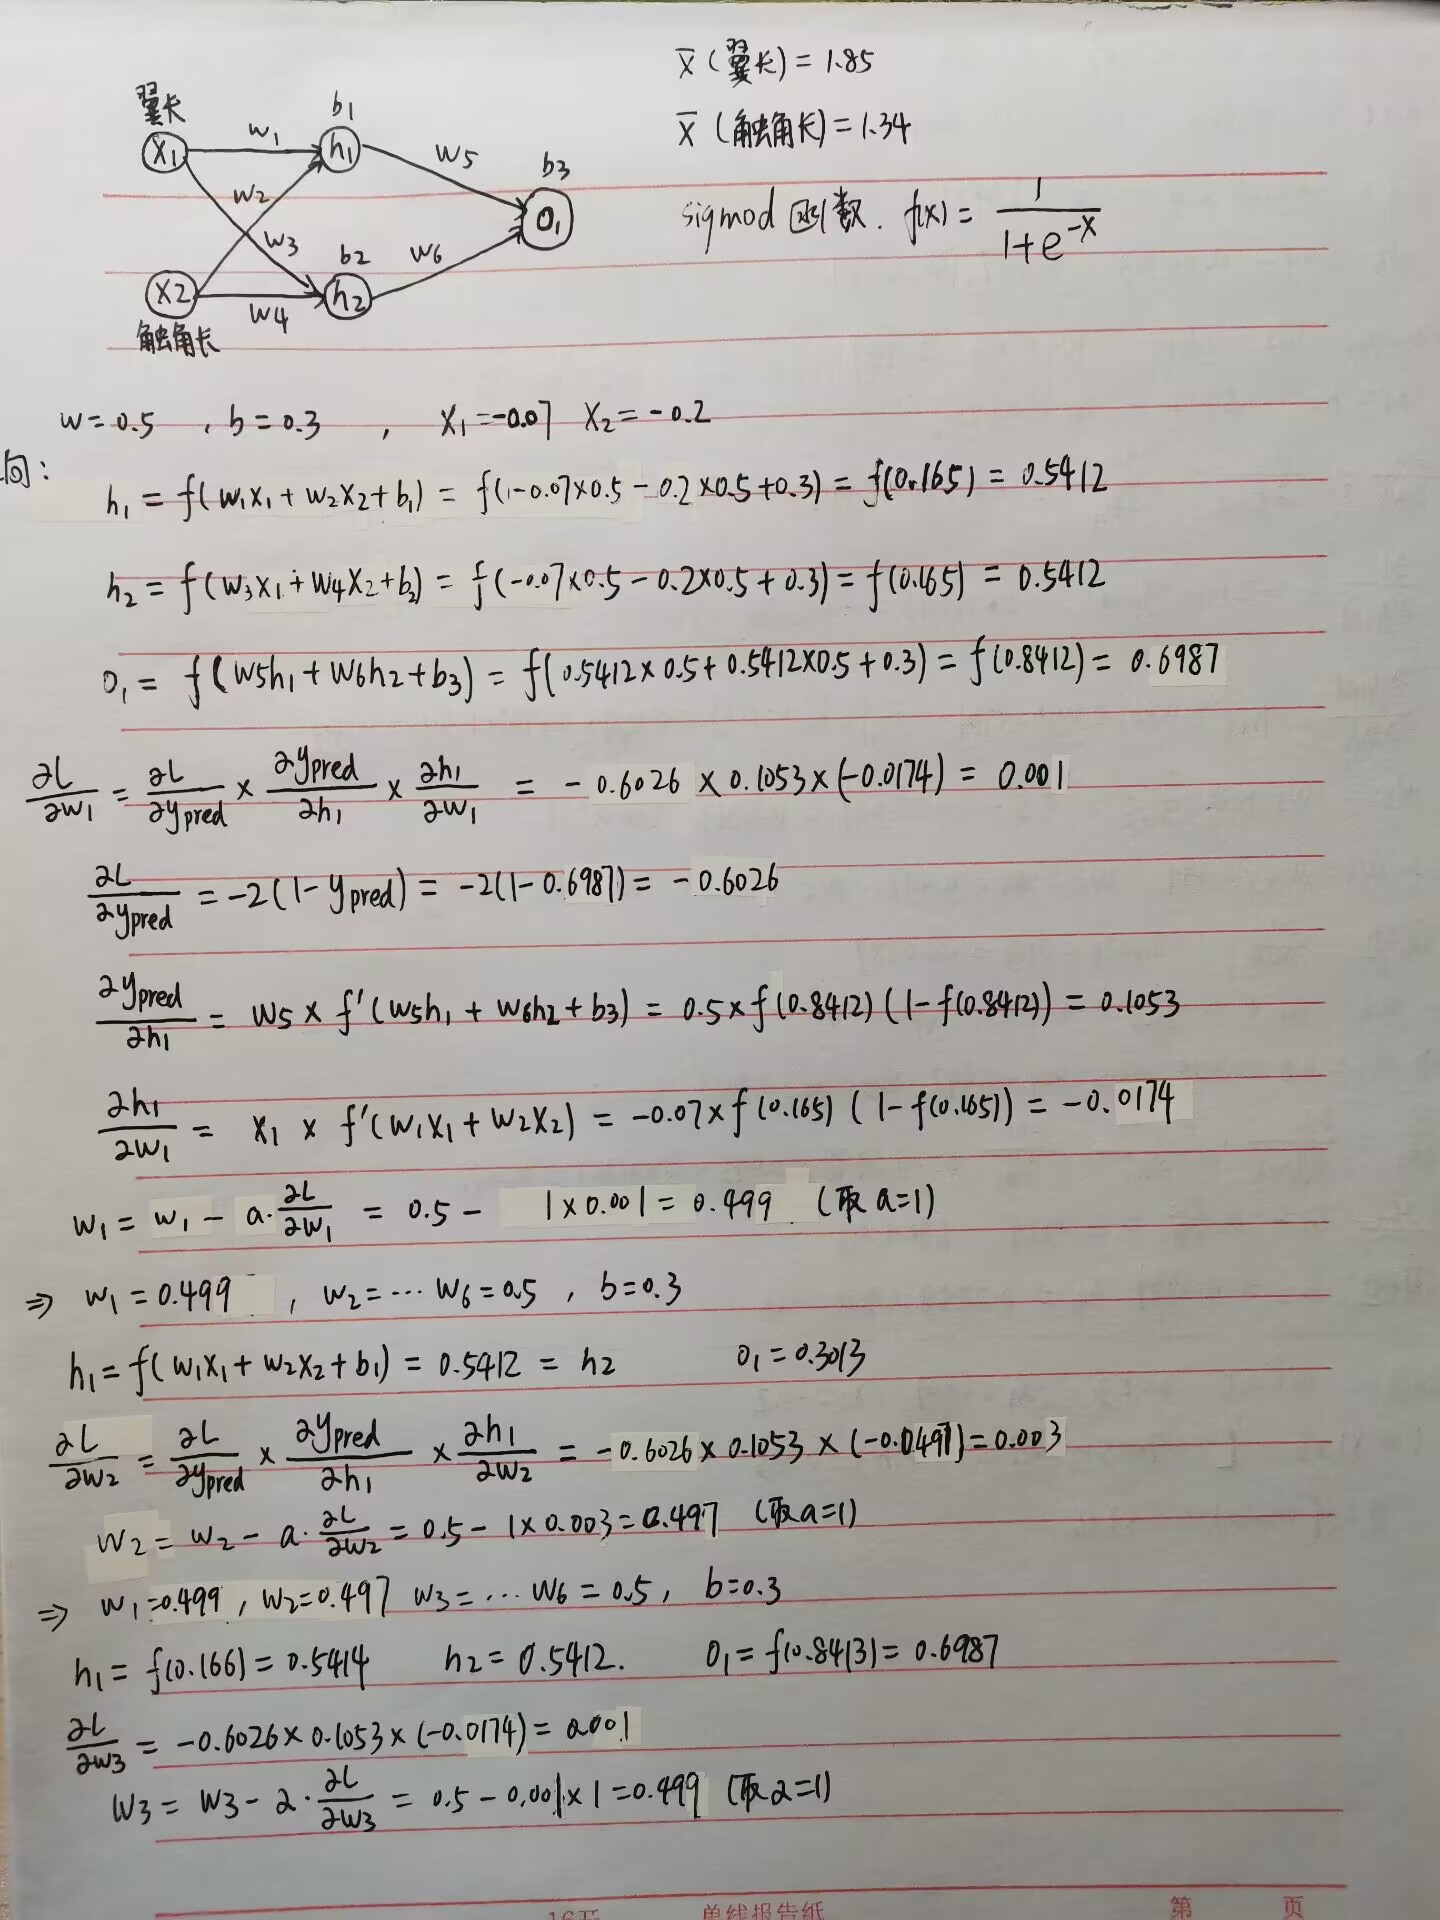 翼长
x̄ (翼长) = 1.85
b1
x̄ (触角长) = 1.34
X1 w1 h1 w5 b3
w2
w3 O1
sigmod 函数. f(x) = 1/(1+e^-x)
b2 w6
X2 w4 h2
触角长
w=0.5 , b=0.3 , X1=-0.07 X2=-0.2
向:
h1 = f(w1x1 + w2x2 + b1) = f(-0.07×0.5 - 0.2×0.5+0.3) = f(0.165) = 0.5412
h2 = f(w3x1 + w4x2 + b2) = f(-0.07×0.5 - 0.2×0.5 + 0.3) = f(0.165) = 0.5412
O1 = f(w5h1 + w6h2 + b3) = f(0.5412×0.5 + 0.5412×0.5 + 0.3) = f(0.8412) = 0.6987
∂L/∂w1 = ∂L/∂ypred × ∂ypred/∂h1 × ∂h1/∂w1 = -0.6026 × 0.1053 × (-0.0174) = 0.001
∂L/∂ypred = -2(1-ypred) = -2(1-0.6987) = -0.6026
∂ypred/∂h1 = w5 × f'(w5h1 + w6h2 + b3) = 0.5 × f(0.8412) (1-f(0.8412)) = 0.1053
∂h1/∂w1 = x1 × f'(w1x1 + w2x2) = -0.07 × f(0.165) (1-f(0.165)) = -0.0174
w1 = w1 - a·∂L/∂w1 = 0.5 - 1×0.001 = 0.499 (取 a=1)
⇒ w1 = 0.499 , w2=…w6=0.5 , b=0.3
h1 = f(w1x1 + w2x2 + b1) = 0.5412 = h2 O1 = 0.3013
∂L/∂w2 = ∂L/∂ypred × ∂ypred/∂h1 × ∂h1/∂w2 = -0.6026 × 0.1053 × (-0.0497) = 0.003
w2 = w2 - a·∂L/∂w2 = 0.5 - 1×0.003 = 0.497 (取a=1)
⇒ w1=0.499 , w2=0.497 w3=…w6=0.5, b=0.3
h1 = f(0.166) = 0.5414 h2 = 0.5412. O1 = f(0.8413) = 0.6987
∂L/∂w3 = -0.6026×0.1053×(-0.0174) = 0.001
w3 = w3 - a·∂L/∂w3 = 0.5 - 0.001×1 = 0.499 (取a=1)
16开 单线报告纸 第 页